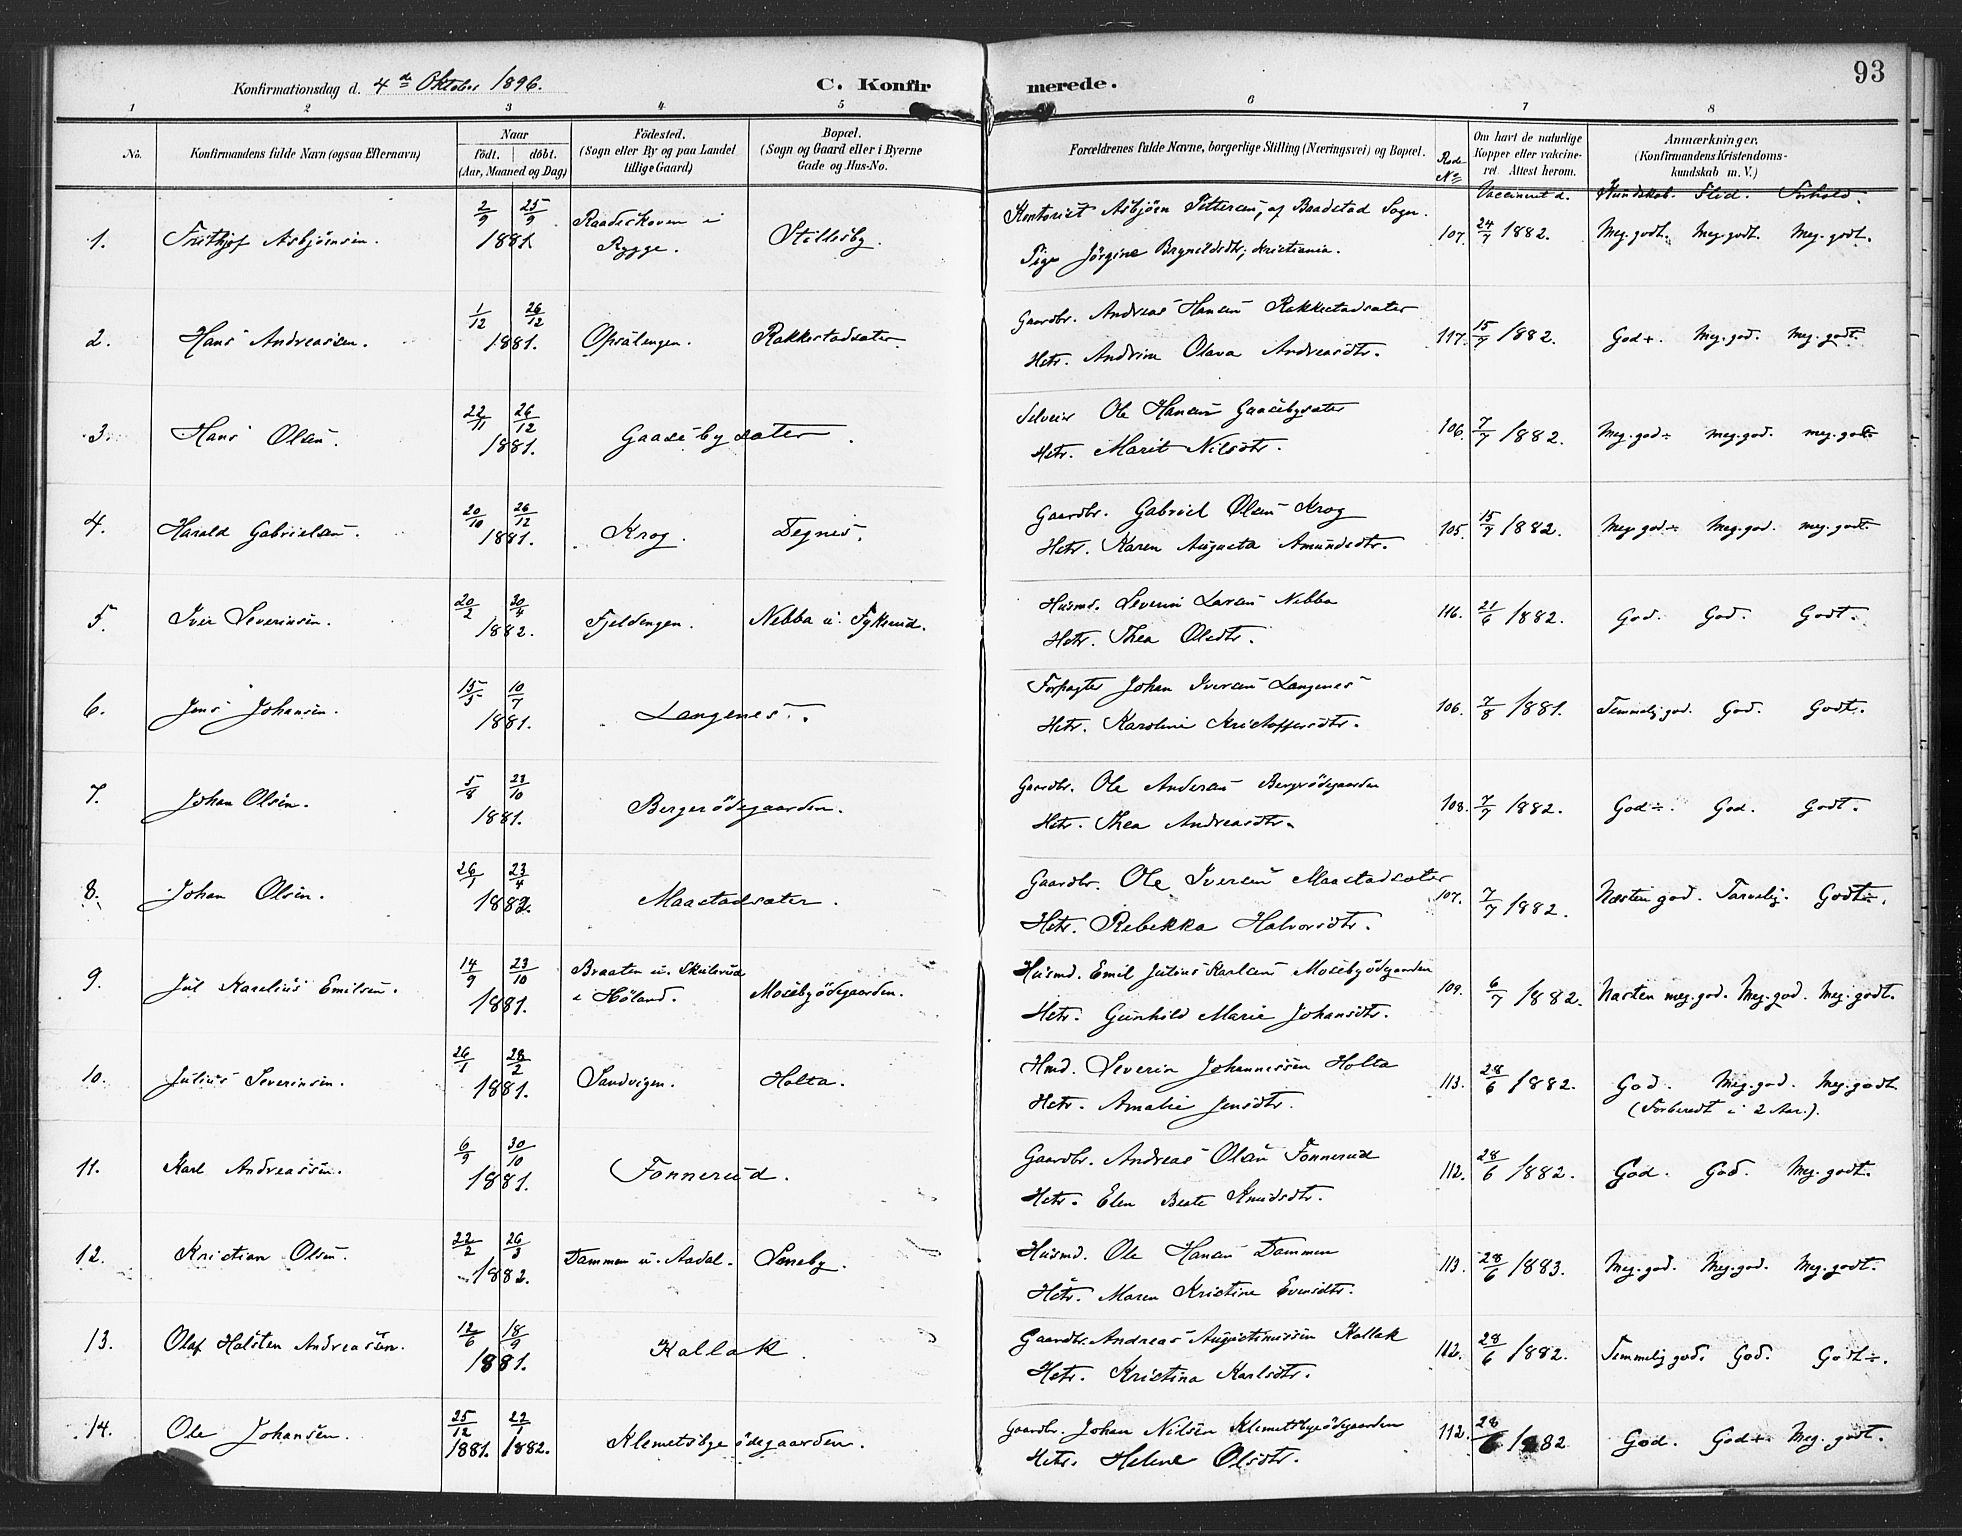 93
Konfirmationsdag d. 4de Oktober 1896. C. Konfirmerede.
1 2 3 4 5 6 7 8
No. Konfirmandens fulde Navn (ogsaa Efternavn) Naar födt. | döbt. (Aar, Maaned og Dag) Födested. (Sogn eller By og paa Landet tillige Gaard) Bopæl. (Sogn og Gaard eller i Byerne Gade og Hus-No. Forældrenes fulde Navne, borgerlige Stilling (Næringsvei) og Bopæl. Rode No Om havt de naturlige Kopper eller vakcineret. Attest herom. Anmærkninger. (Konfirmandens Kristendomskundskab m. V.)
Vaccineret d. Kundskab. Flid. Forhold.
1. Frithjof Asbjörnsen. 2/9 25/9 1881. Raadeskoven i Rygge. Stillesby. Kontorist Asbjörn Pettersen, af Baadstad Sogn.
Pige Jörgine Brynildsdtr, Kristiania. 107. 24/7 1882. Meg. godt. Meg. godt. Meg. godt.
2. Hans Andreassen. 1/12 26/12 1881. Opsalengen. Rakkestadsæter. Gaardbr. Andreas Hansen Rakkestadsæter
Hstr. Andrine Olava Andreasdtr. 117. 15/7 1882. God+. Meg. god. Meg. godt.
3. Hans Olsen. 22/11 26/12 1881. Gaasebysæter. Selveier Ole Hansen Gaasebysæter
Hstr. Marit Nilsdtr. 106. 7/7 1882. Meg. god÷ meg. god. meg. godt
4. Harald Gabrielsen. 20/10 26/12 1881. Krog. Tegnes. Gaardbr. Gabriel Olsen Krog
Hstr. Karen Augusta Amundsdtr. 105. 15/7 1882. Meg. god÷ Meg. god. meg. godt.
5. Iver Severinsen. 20/2 30/4 1882. Fjeldengen. Nebba u. Fyksrud. Husmd. Severin Larsen Nebba
Hstr. Thea Olsdtr. 116. 21/6 1882. God. God. Godt.
6. Jens Johansen. 15/5 10/7 1881. Langenes. Forpagter Johan Iversen Langenes
Hstr. Karoline Kristoffersdtr. 106. 7/8 1881. Temmelig god. God. Godt.
7. Johan Olsen. 5/8 23/10 1881. Bergerödegaarden. Gaardbr. Ole Andersen Bergerödegaarden
Hstr. Thea Andreasdtr. 108. 7/7 1882. God÷. God. Godt.
8. Johan Olsen. 26/1 23/4 1882. Maastadsæter. Gaardbr. Ole Iversen Maastadsæter
Hstr. Rebekka Halvorsdtr. 107. 7/7 1882. Næsten god. Tarvelig. Godt÷.
9. Jul Karelius Emilsen. 14/9 23/10 1881. Braaten u. Skulerud i Höland. Mosebyödegaarden. Husmd. Emil Julius Karlsen Mosebyödegaarden
Hstr. Gunhild Marie Johansdtr. 109. 6/7 1882. Næsten meg. god. Meg. god. Meg. godt.
10. Julius Severinsen. 26/1 28/2 1881. Sandvigen. Holta. Hmd. Severin Johannessen Holta
Hstr. Amalie Jensdtr. 113. 28/6 1882. God. Meg. god. Meg. godt
(Forberedt i 2 Aar.).
11. Karl Andreassen. 6/9 30/10 1881. Tonnerud. Gaardbr. Andreas Olsen Tonnerud
Hstr. Elen Beate Knudsdtr. 112. 28/6 1882. God. God. Meg. godt.
12. Kristian Olsen. 22/2 26/3 1882. Dammen u. Aadal. Seneby. Husmd. Ole Hansen Dammen
Hstr. Maren Kristine Evensdtr. 113. 28/6 1883. Meg. god. Meg. god. Meg. godt.
13. Olaf Halsten Andreassen. 12/6 18/9 1881. Kallak. Gaardbr. Andreas Augustinussen Kallak
Hstr. Kristina Karlsdtr. 112. 28/6 1882. Temmelig god. God. Godt÷.
14. Ole Johansen. 25/12 1881. 22/1 1882. Klemetsbyeödegaarden. Gaardbr. Johan Nilsen Klemetsbyeödegaarden
Hstr. Helene Olsdtr. 112. 28/6 1882 God. God+. Meg. godt.